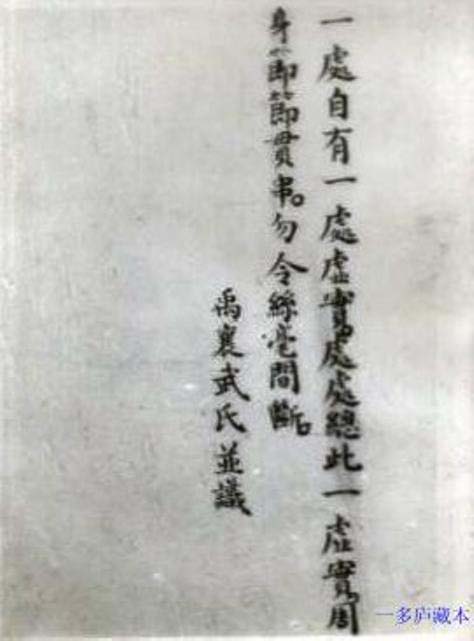 一處自有一處虛實處處總此一虛實周
身節節貫串。勿令絲毫間斷。
禹襄武氏並識
一多庐藏本